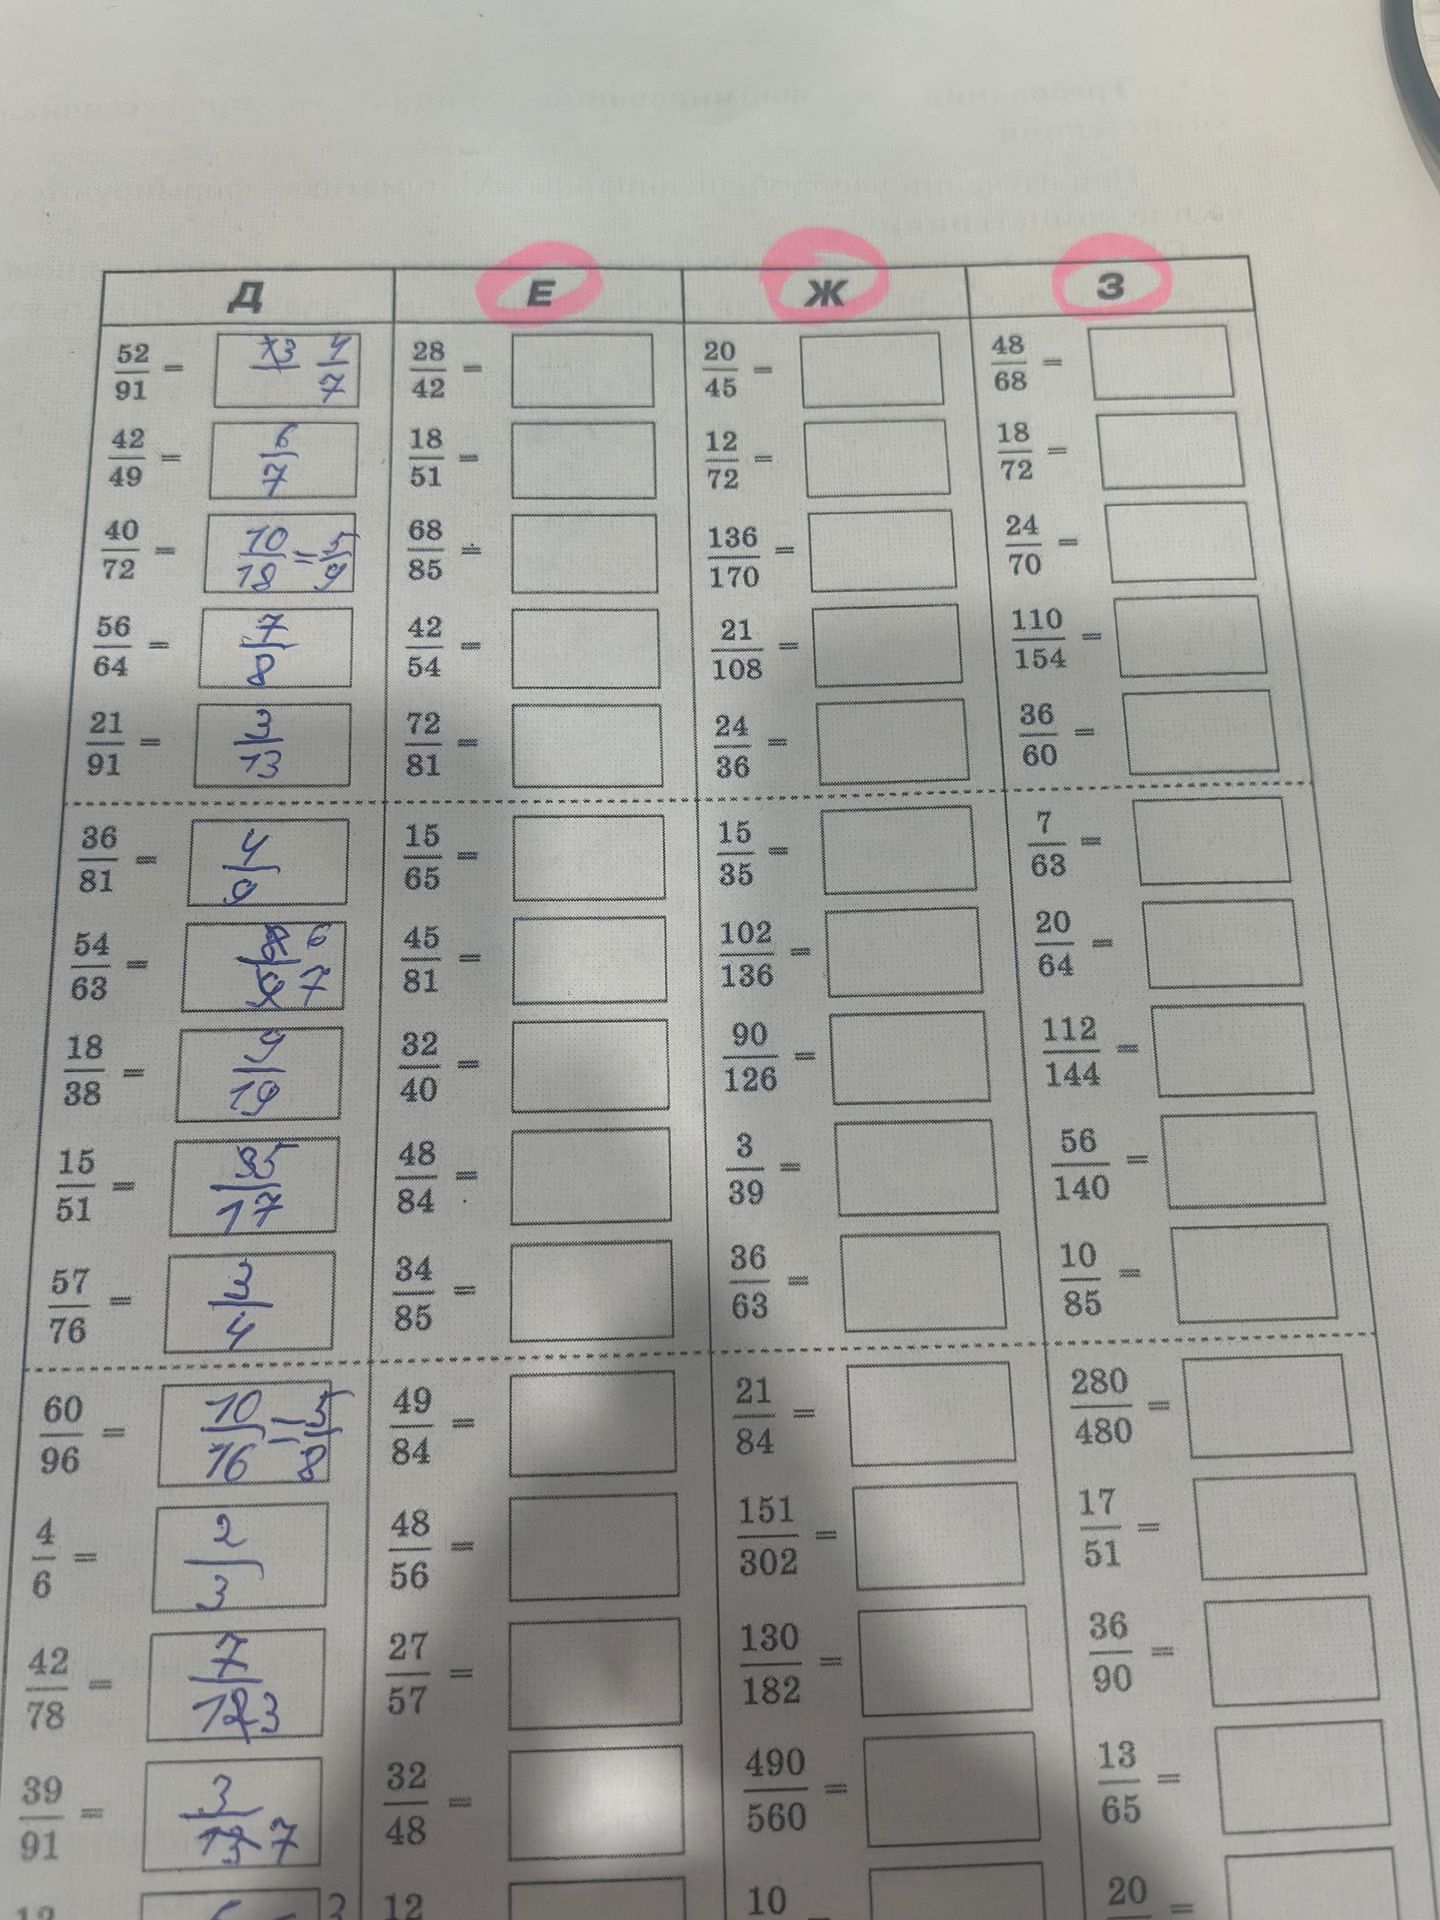 Д Е Ж З
52/91 = 4/7 28/42 = 20/45 = 48/68 =
42/49 = 6/7 18/51 = 12/72 = 18/72 =
40/72 = 10/18 = 5/9 68/85 = 136/170 = 24/70 =
56/64 = 7/8 42/54 = 21/108 = 110/154 =
21/91 = 3/13 72/81 = 24/36 = 36/60 =
36/81 = 4/9 15/65 = 15/35 = 7/63 =
54/63 = 6/7 45/81 = 102/136 = 20/64 =
18/38 = 9/19 32/40 = 90/126 = 112/144 =
15/51 = 5/17 48/84 = 3/39 = 56/140 =
57/76 = 3/4 34/85 = 36/63 = 10/85 =
60/96 = 10/16 = 5/8 49/84 = 21/84 = 280/480 =
4/6 = 2/3 48/56 = 151/302 = 17/51 =
42/78 = 7/13 27/57 = 130/182 = 36/90 =
39/91 = 3/7 32/48 = 490/560 = 13/65 =
12 12 10 20 =